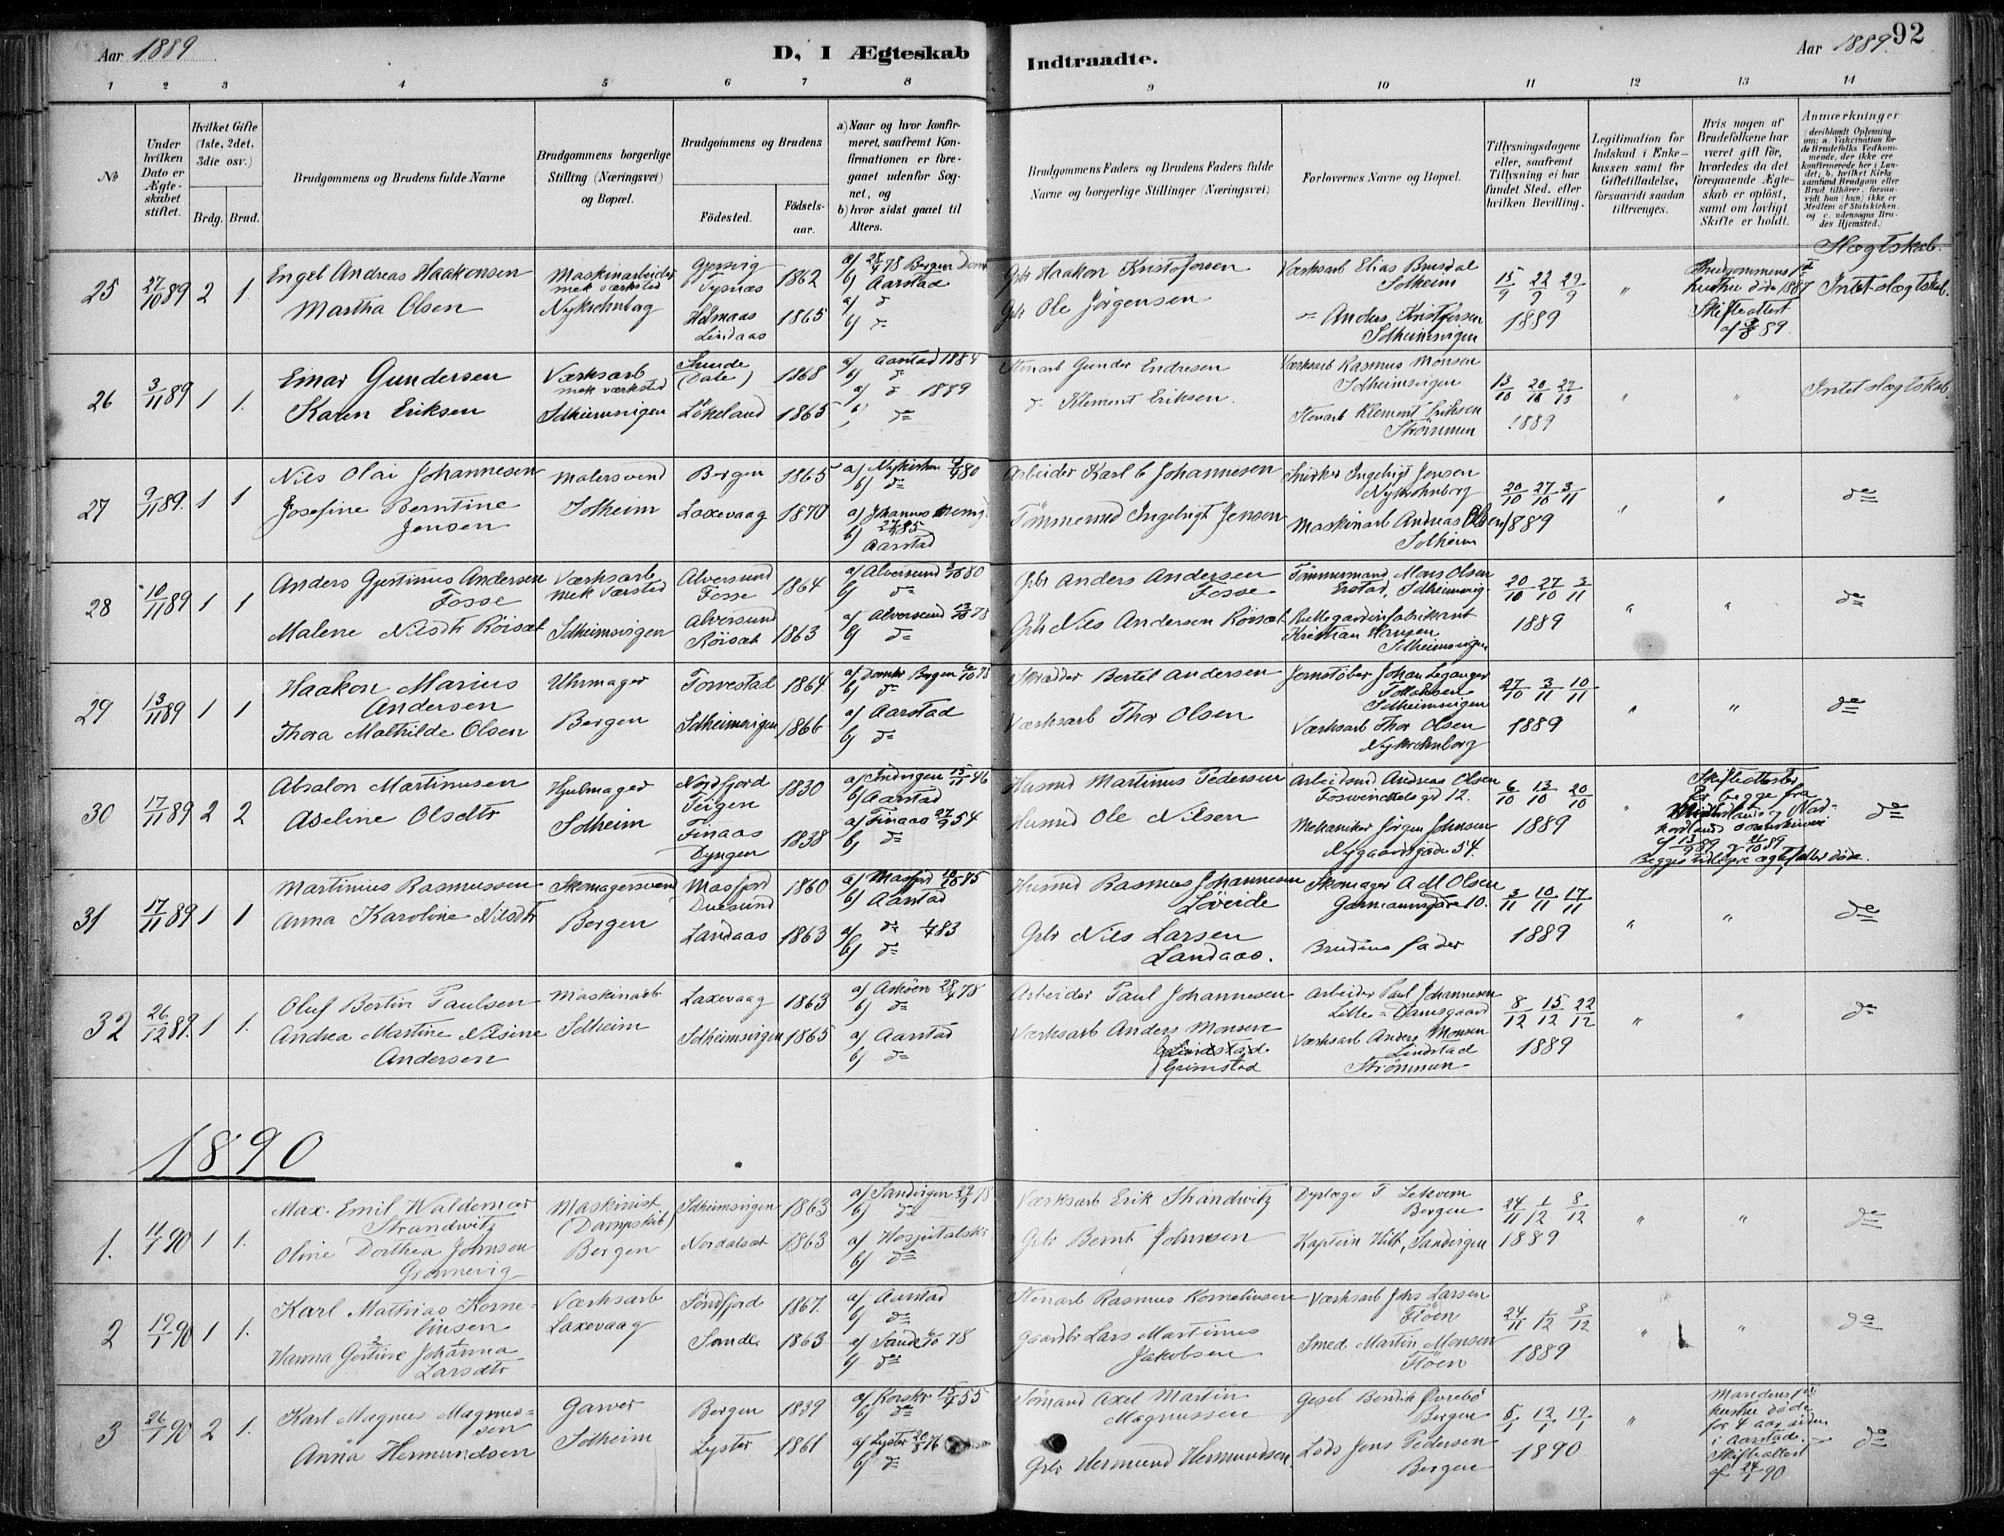 Aar 1889
D, I Ægteskab
Indtraadte.
Aar 1889.
92
1 2 3 4 5 6 7 8 9 10 11 12 13 14
No
Under hvilken Dato er Ægteskabet stiftet.
Hvilket Gifte (1ste, 2det, 3die osv.)
Brdg. Brud.
Brudgommens og Brudens fulde Navne
Brudgommens borgerlige Stilling (Næringsvei) og Bopæl.
Brudgommens og Brudens
Fødested.
Fødselsaar.
a) Naar og hvor konfirmeret, saafremt Konfirmationen er foregaaet udenfor Sognet, og
b) hvor sidst gaaet til Alters.
Brudgommens Faders og Brudens Faders fulde Navne og borgerlige Stillinger (Næringsvei)
Forlovernes Navne og Bopæl.
Tillysningsdagene eller, saafremt Tillysning ei har fundet Sted, efter hvilken Bevilling.
Legitimation for Indskud i Enkekassen samt for Giftetilladelse, forsaavidt saadan tiltrænges.
Hvis nogen af Brudefolkene har været gift før, hvorledes da det foregaaende Ægteskab er opløst, samt om lovligt Skifte er holdt.
Anmærkninger (deriblandt Oplysning om: a. Vakcination for de Brudefolks Vedkommende, der ikke ere konfirmerede her i Landet; b. hvilket Kirkesamfund Brudgom eller Brud tilhører, forsaavidt han (hun) ikke er Medlem af Statskirken, og c. udensogns Brudes Hjemsted.
Slægtskab.
25 27/10 89 2 1. Engel Andreas Haakonsen
Maskinarbeider mek værksted
Gjersvig Tysnæs 1862 a) 28/4 78 Bergen Domk b) Aarstad
Gbr Haakon Kristofersen
Værksarb Elias Brusdal Solheim
15/9 22/9 29/9 1889 „
Brudgommens 1ste hustru død 1887 Skifteattest af 9/8 89.
Intet slægtskab.
Martha Olsen
Nykrohnborg
Holmaas Lindaas 1865 a) d b) do
Gbr Ole Jørgensen
= Anders Kristofersen Solheimsvigen
26 3/11 89 1 1. Einar Gundersen
Værksarb mek værksted
(Dale) 1868 a) Aarstad 1884 b) do
Stenarb Gunder Endresen
Værksarb Rasmus Monsen Solheimsvigen
13/10 20/10 27/10 1889 „ „ Intet slægtskab.
Karen Eriksen
Solheimsvigen
Løkeland 1865 a) d 1889 b) do
d. Klement Eriksen.
Stenarb Klement Eriksen Strømmen
27 9/11 89. 1 1 Nils Olai Johannesen
Malersvend
Bergen 1865 b) do
Arbeider Karl C Johannesen
Snedker Ingebrigt Jensen Nykrohnborg
20/10 27/10 3/11 1889 „ „ do
Josefine Berntine Jensen
Solheim
Laxevaag 1870 b) Aarstad
Tømmermd Ingebrigt Jensen
Maskinarb Andreas Olsen Solheim
28 10/11 89 1 1 Anders Gjertinus Andersen Fosse
Værksarb mek Værsted
Alversund Fosse 1864 b) do
Gbr Anders Andersen Fosse
Tømmermand Mons Olsen
20/10 27/10 3/11 1889 „ „ do
Malene Nilsdtr Röisæt
Solheimsvigen
Alversund Röisæt 1863 a) Alversund 13/10 78 b) do
Gbr Nils Andersen Röisæt
Rullegardinfabrikant Kristian Hansen Solheimsvigen
29 13/11 89 1 1 Haakon Marius Andersen
Uhrmager
Torvestad 1864 a) Domkr Bergen 6/10 78 b) do
Skrædder Bertel Andersen
Jernstøber Johan Leganger Tollaksen Solheimsvigen
27/10 3/11 10/11 1889 „ „ do
Thora Mathilde Olsen
Bergen
Solheimsvigen 1866 a) Aarstad b) do
Værksarb Thor Olsen
Værksarb Thor Olsen Nykrohnborg
30 17/11 89 2 2 Absalon Martinusen
Hjulmager
Nordfjord Teigen 1830 a) Indvigen 15/11 46 b) Aarstad
Husmd Martinus Pedersen
Arbeidsmd Andreas Olsen 12.
6/10 13/10 20/10 1889 „
Skifteattester for begge fra
Begges tidligere ægtefæller døde.
do
Aseline Olsdtr
Solheim
Finaas Dyngen 1838 a) Finaas 27/9 54 b) do
Husmd Ole Nilsen
Mekaniker Jørgen Johnsen Nygaardsgade 54.
31 17/11 89 1 1 Martinius Rasmussen
Skomagersvend
Masfjord Duesund 1860 b) Aarstad
Husmd Rasmus Johannesen Løveide
Skomager A M Olsen 10.
3/11 10/11 17/11 1889 „ „ do
Anna Karoline Nilsdtr
Bergen
Landaas 1863 a) do 1/4 83 b) do
Gbr Nils Larsen Landaas.
Brudens fader
32 26/12 89. 1 1. Oluf Bertin Paulsen
Maskinarb
Laxevaag 1863 a) Askøen 28/4 78 b) do
Arbeider Paul Johannesen
Arbeider Paul Johannesen Lille = Damsgaard
8/12 15/12 22/12 1889 „ „ do
Andrea Martine Nilsine Andersen
Solheim
Solheimsvigen 1865 a) Aarstad b) do
Værksarb Anders Monsen Grimstad
Værksarb Anders Monsen Lindstad Strømmen
1890
1. 11/1 90 1 1. Max Emil Waldemar Strandwitz
Maskinist (Dampskib)
Solheimsvigen 1863 b) do
Værksarb Erik Strandwitz
Dyrlæge T Lekvem Bergen
24/11 1/12 8/12 1889 „ „ do
Oline Dorthea Johnsen Grønnevig
Bergen
Nordalsæt 1863 a) Hospitalskr b) do
Gbr Bernt Johnsen
Kaptein Hilt, Sandvigen
2 19/1 90 1 1. Karl Mathias Kornelinsen
Værksarb Laxevaag
Søndfjord 1867. a) Aarstad b) do
Stenarb Rasmus Korneliusen
Værksarb Johs Larsen Fløen
24/11 1/12 8/12 1889 „ „ do
Hanna Gertine Johanna Larsdtr
Sande 1863 b) do
Gaardbr Lars Martinus Jakobsen
Smed Martin Monsen Fløen
3 26/1 90 2 1. Karl Magnus Magnussen
Garver
Bergen 1839 a) Korskr 15/4 55 b) do
Sømand Axel Martin Magnussen
Gesel Bendik Øvrebø Bergen
5/1 12/1 19/1 1890 „
Mandens før. hustru døde for 4 aar siden i Aarstad. Skifteattest af 24/1 90
do
Anna Hermundsen
Solheim
Lyster 1861 b) do
Gbr Hermund Hermundsen
Lods Jens Pedersen Bergen